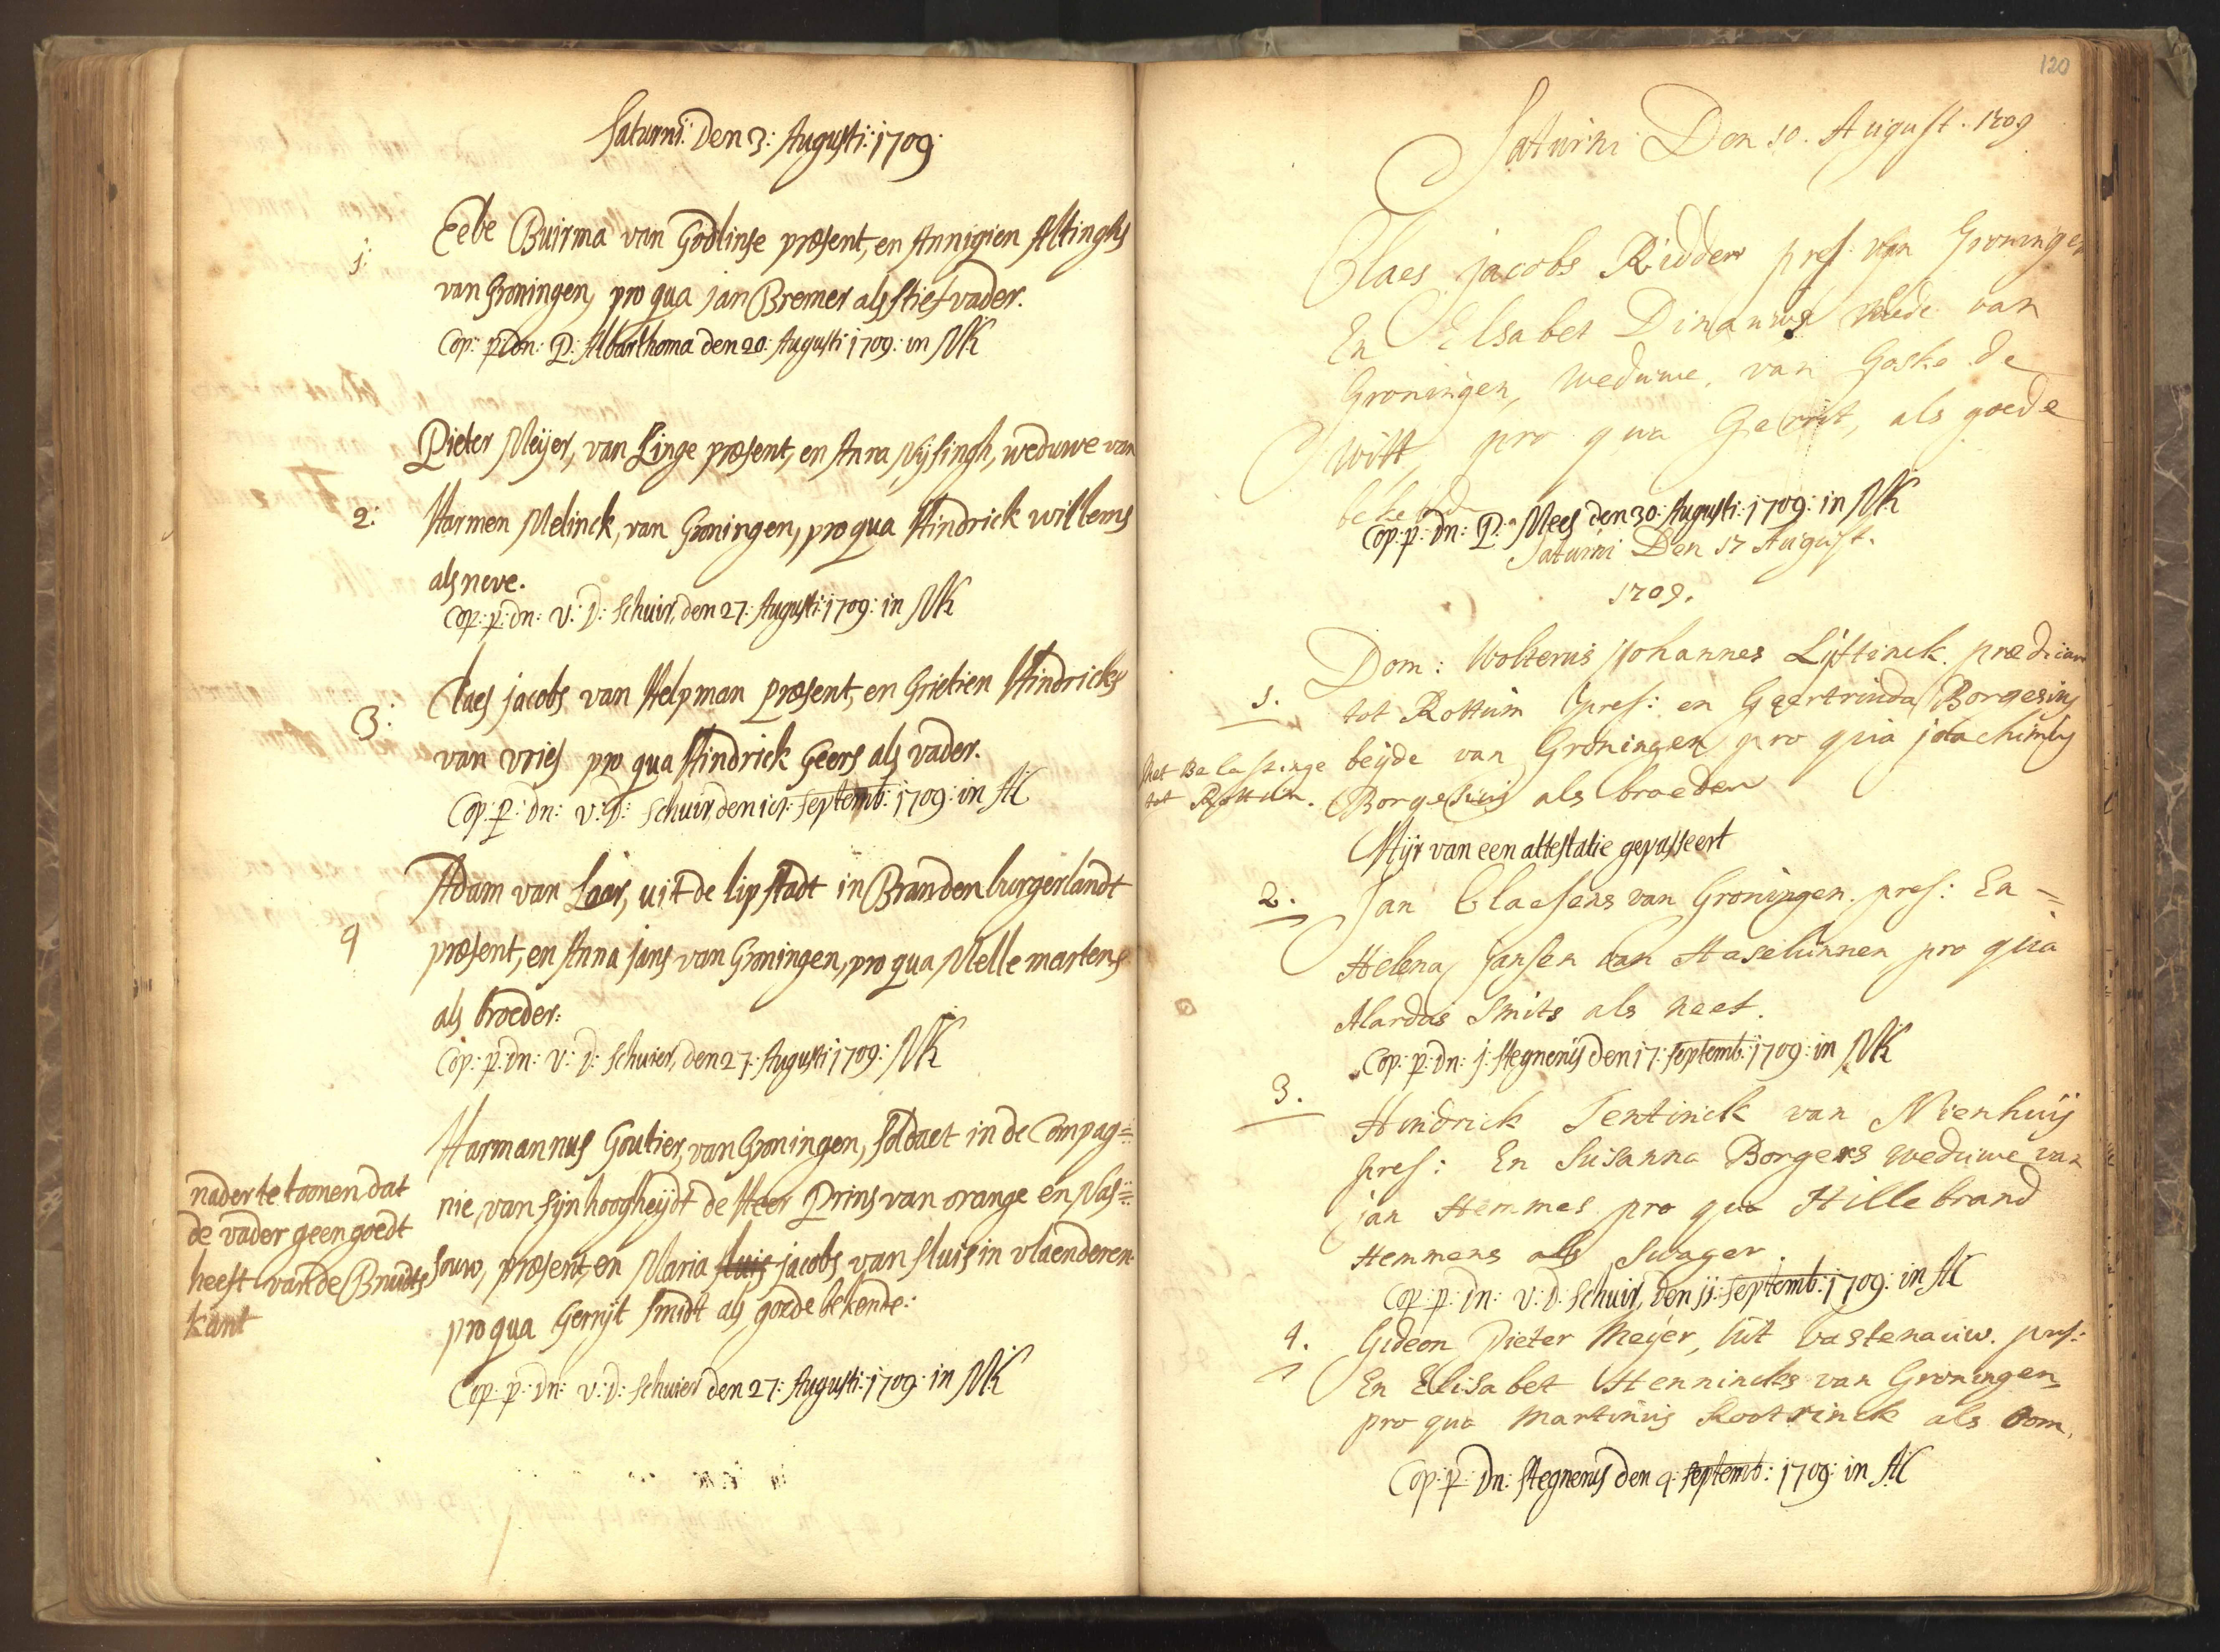 Saturni: Den 3: Augusti: 1709:
1: Eebe Buirma van Godlinse præsent, en Annigien Altinghs
van Groningen, pro qua jan Bremer als stiefvader.
Cop: p: dn: P: Albarthoma den 20: Augusti 1709: in NK
Pieter Meijer, van Linge præsent, en Anna Nijsingh, weduwe van
2: Harmen Melinck, van Groningen, pro qua Hindrick willems
als neve.
Cop: p: dn: v: D: Schuir, den 27: Augusti: 1709: in NK
Claes jacobs van Helpman præsent, en Grietien Hindricks
3: van vries pro qua Hindrick Geers als vader.
Cop: p: dn: v: D: Schuir, den septemb: 1709: in AK
Adam van Laer, uit de lipstadt in Brandenburgerlandt
4 præsent, en Anna jans van Groningen, pro qua Melle martens
als broeder:
Cop: p: dn: v: D: Schuier, den 27: Augusti 1709: NK
Harmannus Goutier, van Groningen, soldaet in de Compag=
nie, van sijn hoogheijdt de Heer Prins van orange en Nas=
souw, præsent, en Maria sluis jacobs van sluis in vlaenderen
pro qua Gerrijt Smidt als goede bekende:
Cop: p: dn: v: D: Schuier den 27: Augusti: 1709: in NK
nader te toonen dat
de vader geen goedt
heeft van de Bruidts
kant
120
Saturni Den 10. August. 1709
Claes jacobs Ridder pres: van Groningen
En Elsabet Dinanus Wede van
Groningen, weduwe, van Goske de
Witt, pro qua Gerrit, als goede
bekende
Cop: p: dn: P: Mees den 30: Augusti: 1709: in NK
Saturni Den 17 August.
1709.
1. Dom: Wolterus Johannes Lijftinck. prædicant
tot Rottum pres: en Geertruida Borgesius
beijde van Groningen pro qua joachimus
Borgesius als broeder
Met Belastinge
tot Rottum.
Hijr van een attestatie gepasseert
2. Jan Claesens van Groningen. pres: En =
Helena jansen van Haselunnen pro qua
Alardus Smits als neef.
Cop: p: dn: j: Stegnerus den 17: septemb: 1709: in NK
3. Hindrick Tentinck van Nienhuis
pres: En Susanna Borgers weduwe van
jan Hemmes pro qua Hillebrand
Hemmens als Swager.
Cop: p: dn: v: D: Schuir, den 11: septemb: 1709: in AK
4. Gideon Pieter Meijer, uit Vastenauw. pres:
En Elisabet Hennincks van Groningen
pro qua Martinus Rootrinck als Oom.
Cop: p: Dn: Stegnerus den 9: septemb: 1709: in AK